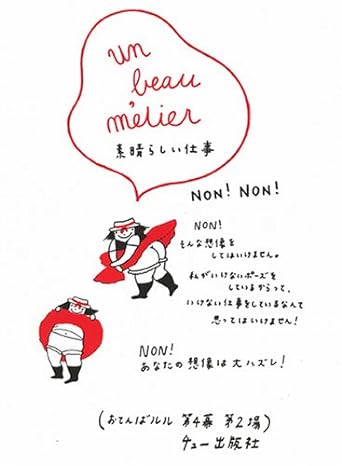 un
beau
métier
素晴らしい仕事
NON! NON!
NON!
そんな想像を
してはいけません。
私がいけないポーズを
しているからって、
いけない仕事をしているなんて
思ってはいけません!
NON!
あなたの想像は大ハズレ!
(おてんばルル 第4幕 第2場)
チュー出版社